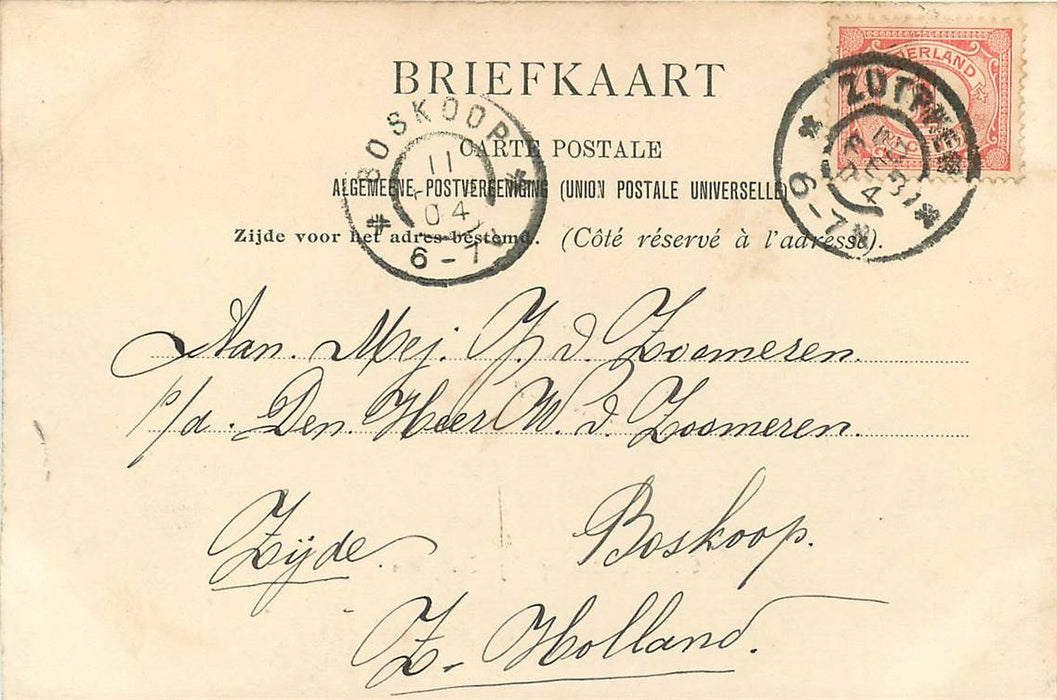 BRIEFKAART
CARTE POSTALE
ALGEMEENE POSTVEREENIGING (UNION POSTALE UNIVERSELLE)
Zijde voor het adres bestemd. (Côté réservé à l'adresse).
BOSKOOP
11
04
6-7
ZUTPHEN
6-7
Aan. Mej. J. v. d. Zoomeren.
p/a. Den. Heer W. v. d. Zoomeren.
Zijde. Boskoop.
Z. Holland.